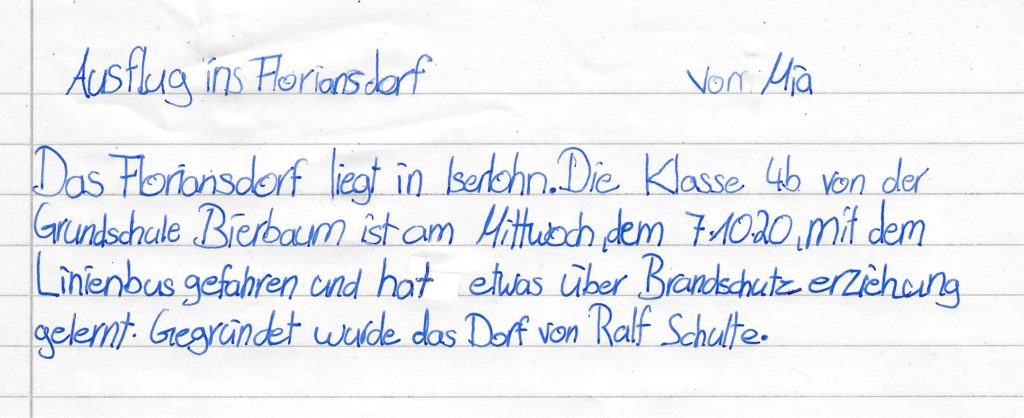 Ausflug ins Floriansdorf von Mia
Das Floriansdorf liegt in Iserlohn. Die Klasse 4b von der
Grundschule Bierbaum ist am Mittwoch, dem 7.10.20, mit dem
Linienbus gefahren und hat etwas über Brandschutzerziehung
gelernt. Gegründet wurde das Dorf von Ralf Schulte.